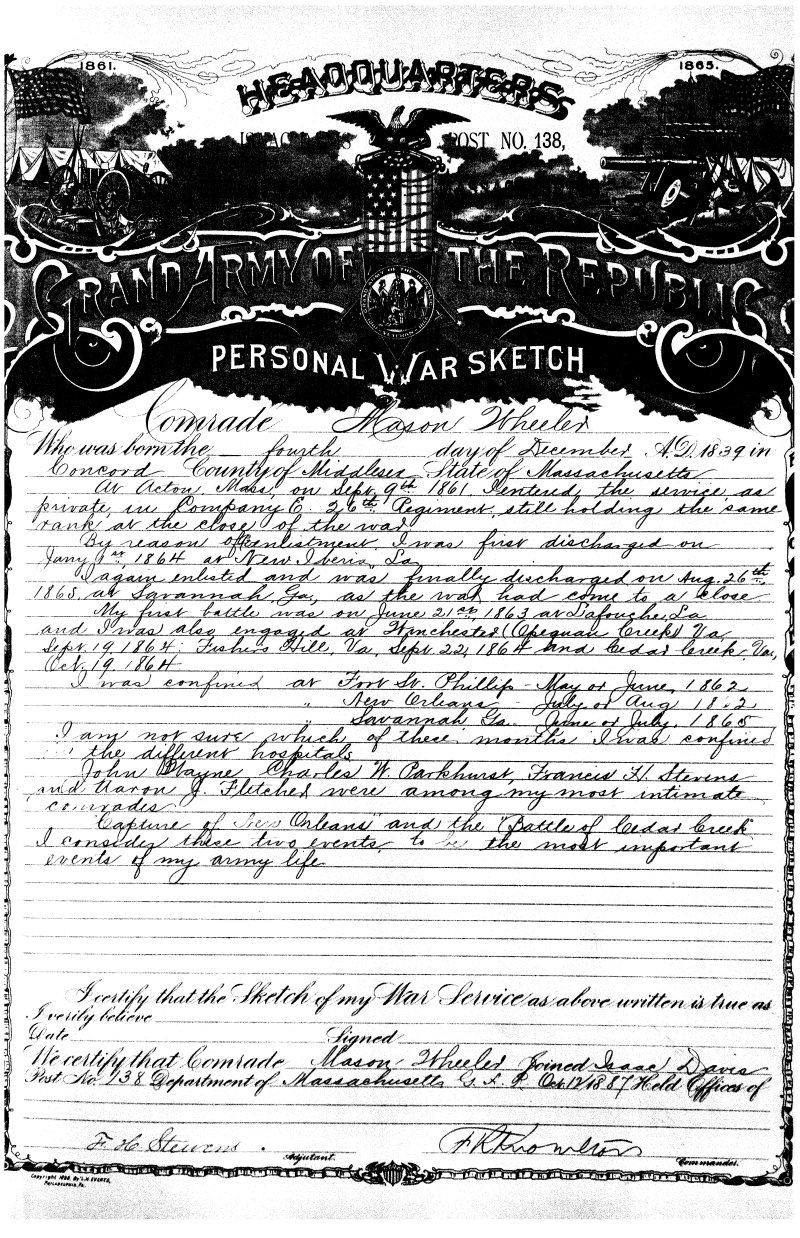 1861. 1865.
HEADQUARTERS
POST NO. 138,
GRAND ARMY OF THE REPUBLIC
PERSONAL WAR SKETCH
Comrade Mason Wheeler
Who was born the fourth day of December A.D. 1839 in
Concord County of Middlesex State of Massachusetts
At Acton, Mass, on Sept. 9th 1861 I entered the service as
private, in Company E. 26th Regiment, still holding the same
rank at the close of the war.
By reason of enlistment I was first discharged on
Jany 1st 1864 at New Iberia, La
I again enlisted and was finally discharged on Aug. 26th,
1865, at Savannah, Ga., as the war had come to a close
My first battle was on June 21st, 1863 at Lafouche, La
and I was also engaged at Winchester (Opequan Creek) Va,
Sept. 19, 1864, Fishers Hill, Va, Sept 22, 1864 and Cedar Creek, Va.,
Oct. 19, 1864
I was confined at Fort St. Phillip - May or June, 1862
" New Orleans - July or Aug 1862
" Savannah Ga. June or July, 1865
I am not sure which of these months I was confined
the different hospitals
John Wayne, Charles W. Parkhurst, Francis H. Stevens
and Aaron J. Fletcher were among my most intimate
comrades
"Capture of New Orleans" and the "Battle of Cedar Creek"
I consider these two events, to be the most important
events of my army life.
I certify that the Sketch of my War Service as above written is true as
I verily believe
Date Signed
We certify that Comrade Mason Wheeler Joined Isaac Davis
Post No. 138 Department of Massachusetts G.A.R. Oct. 12 1887 Held Offices of
F. H. Stevens. Adjutant. F K Knowlton Commander.
Copyright 1890. By L.H. EVERTS,
PHILADELPHIA, PA.